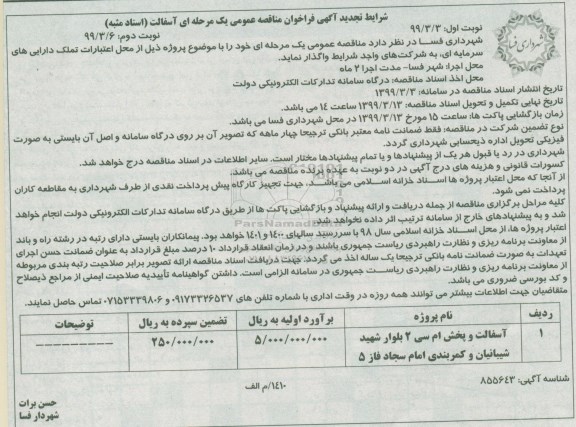 شرایط تجدید آگهی فراخوان مناقصه عمومی یک مرحله ای آسفالت (اسناد مثبه)
نوبت اول: ۹۹/۳/۳ نوبت دوم: ۹۹/۳/۶
شهرداری فسا
شهرداری فسا در نظر دارد مناقصه عمومی یک مرحله ای خود را با موضوع پروژه ذیل از محل اعتبارات تملک دارایی های
سرمایه ای، به شرکت‌های واجد شرایط واگذار نماید.
محل اجرا: شهر فسا- مدت اجرا ۲ ماه
محل اخذ اسناد مناقصه: درگاه سامانه تدارکات الکترونیکی دولت
تاریخ انتشار اسناد مناقصه در سامانه: ۱۳۹۹/۳/۳
تاریخ نهایی تکمیل و تحویل اسناد مناقصه: ۱۳۹۹/۳/۱۳ ساعت ۱۴ می باشد.
زمان بازگشایی پاکت ها: ساعت ۱۵ مورخ ۱۳۹۹/۳/۱۳ در محل شهرداری فسا می باشد.
نوع تضمین شرکت در مناقصه: فقط ضمانت نامه معتبر بانکی ترجیحا چهار ماهه که تصویر آن بر روی درگاه سامانه و اصل آن بایستی به صورت
فیزیکی تحویل اداره ذیحسابی شهرداری گردد.
شهرداری در رد یا قبول هر یک از پیشنهادها و یا تمام پیشنهادها مختار است. سایر اطلاعات در اسناد مناقصه درج خواهد شد.
کسورات قانونی و هزینه های درج آگهی در دو نوبت به عهده برنده مناقصه می باشد.
از آنجا که محل اعتبار پروژه ها اسناد خزانه اسلامی می باشد. جهت تجهیز کارگاه پیش پرداخت نقدی از طرف شهرداری به مقاطعه کاران
پرداخت نمی شود.
کلیه مراحل برگزاری مناقصه از جمله دریافت و ارائه پیشنهاد و بازگشایی پاکت ها از طریق درگاه سامانه تدارکات الکترونیکی دولت انجام خواهد
شد و به پیشنهادهای خارج از سامانه ترتیب اثر داده نخواهد شد.
اعتبار پروژه ها، از محل اسناد خزانه اسلامی سال ۹۸ با سررسید سالهای ۱۴۰۰ و ۱۴۰۱ خواهد بود. پیمانکاران بایستی دارای رتبه در رشته راه و باند
از معاونت برنامه ریزی و نظارت راهبردی ریاست جمهوری باشند و در زمان انعقاد قرارداد ۱۰ درصد مبلغ قرارداد به عنوان ضمانت حسن اجرای
تعهدات به صورت ضمانت نامه بانکی ترجیحا یک ساله اخذ می گردد. جهت دریافت اسناد مناقصه ارائه تصویر برابر صلاحیت رتبه بندی مربوطه
از معاونت برنامه ریزی و نظارت راهبردی ریاست جمهوری در سامانه الزامی است. داشتن گواهینامه تأییدیه صلاحیت ایمنی از مراجع ذیصلاح
و کد بورسی ضروری می باشد.
متقاضیان جهت اطلاعات بیشتر می توانند همه روزه در وقت اداری با شماره تلفن های ۰۹۱۷۳۳۲۶۵۳۷ و ۰۷۱۵۳۳۳۹۸۰۶ تماس حاصل نمایند.
ردیف نام پروژه برآورد اولیه به ریال تضمین سپرده به ریال توضیحات
۱ آسفالت و پخش ام سی ۲ بلوار شهید شیبانیان و کمربندی امام سجاد فاز ۵ ۵/۰۰۰/۰۰۰/۰۰۰ ۲۵۰/۰۰۰/۰۰۰ ---------
شناسه آگهی: ۸۵۵۶۴۳
۱۴۱۰/م الف
حسن برات
شهردار فسا